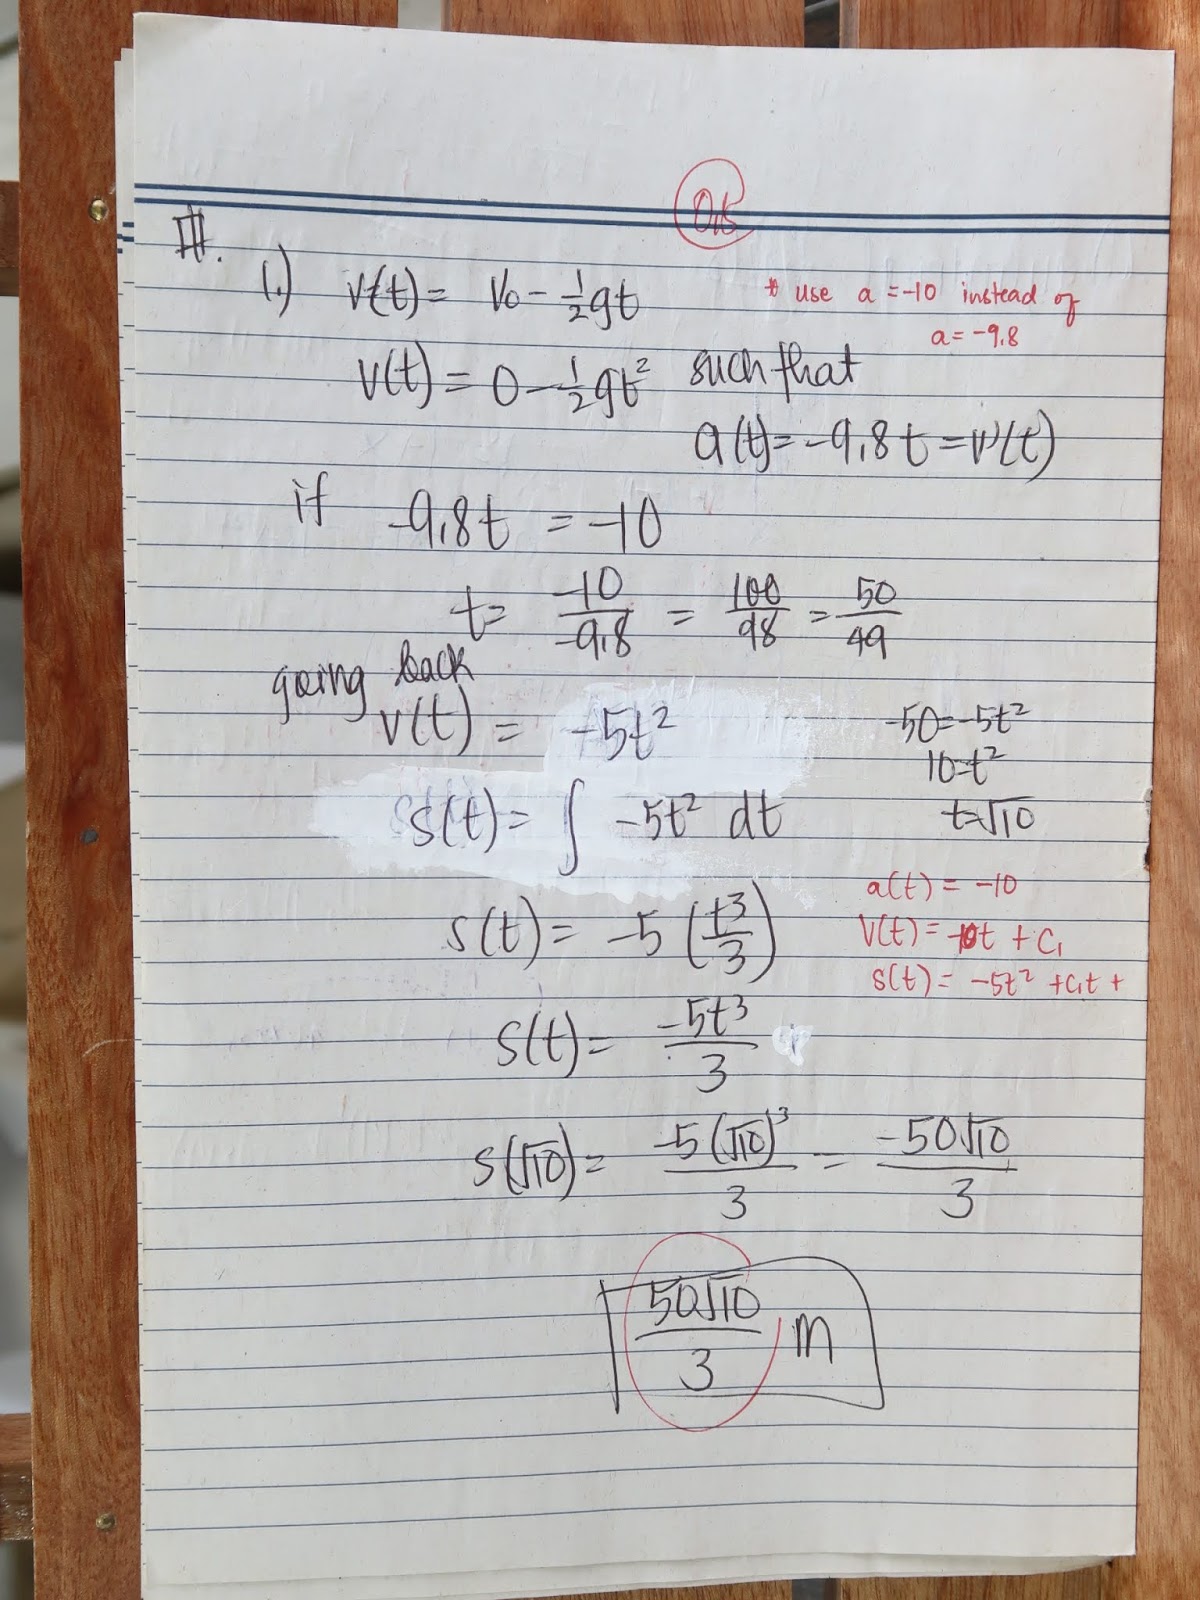 0.5
III.
1.) v(t) = V0 - 1/2 gt
* use a = -10 instead of
a = -9.8
v(t) = 0 - 1/2 gt² such that
a(t) = -9.8t = v'(t)
if -9.8t = -10
t = -10/-9.8 = 100/98 = 50/49
going back
v(t) = -5t²
-50 = -5t²
10 = t²
t = √10
s(t) = ∫ -5t² dt
a(t) = -10
v(t) = -10t + C₁
s(t) = -5t² + C₁t +
s(t) = -5 (t³/3)
s(t) = -5t³/3
s(√10) = -5(√10)³/3 = -50√10/3
50√10/3 m